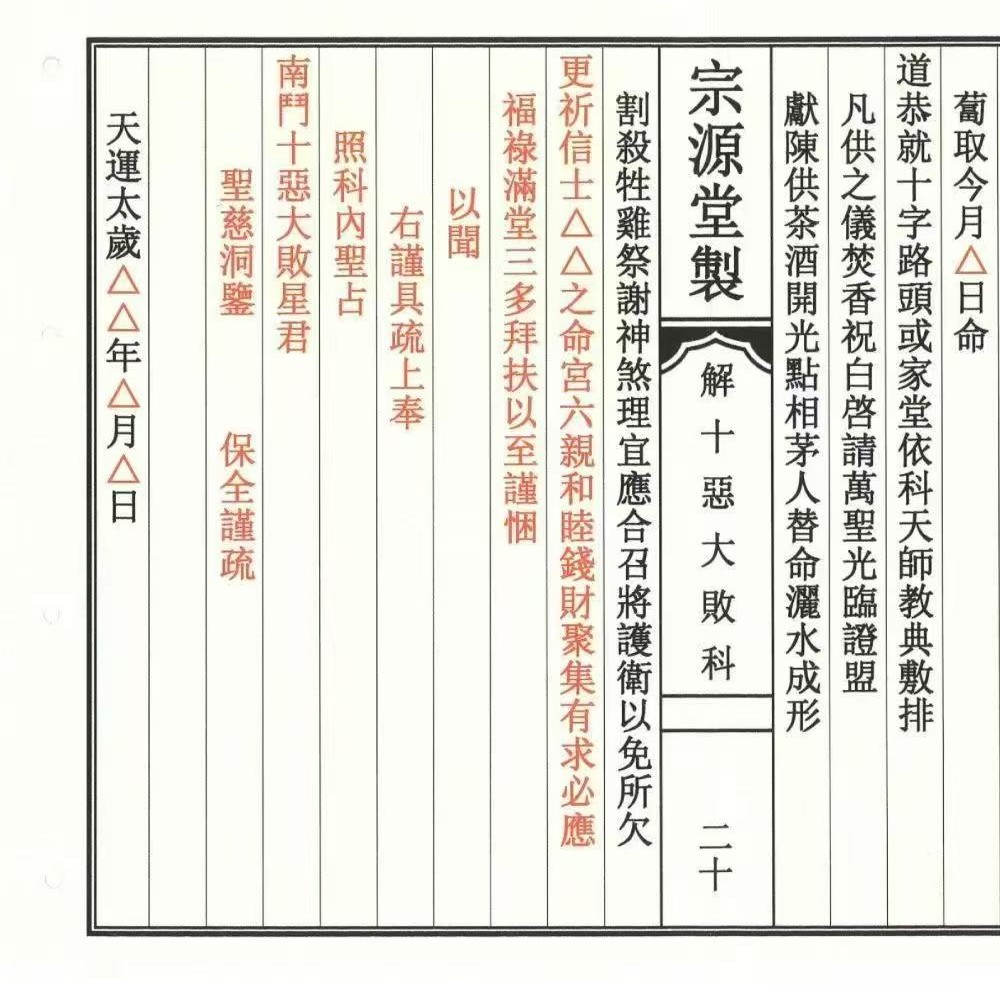 蔔取今月△日命
道恭就十字路頭或家堂依科天師教典敷排
凡供之儀焚香祝白啓請萬聖光臨證盟
獻陳供茶酒開光點相茅人替命灑水成形
宗源堂製
解十惡大敗科
二十
割殺牲雞祭謝神煞理宜應合召將護衛以免所欠
更祈信士△△之命宮六親和睦錢財聚集有求必應
福祿滿堂三多拜扶以至謹悃
以聞
右謹具疏上奉
照科內聖占
南鬥十惡大敗星君
聖慈洞鑒 保全謹疏
天運太歲△△年△月△日